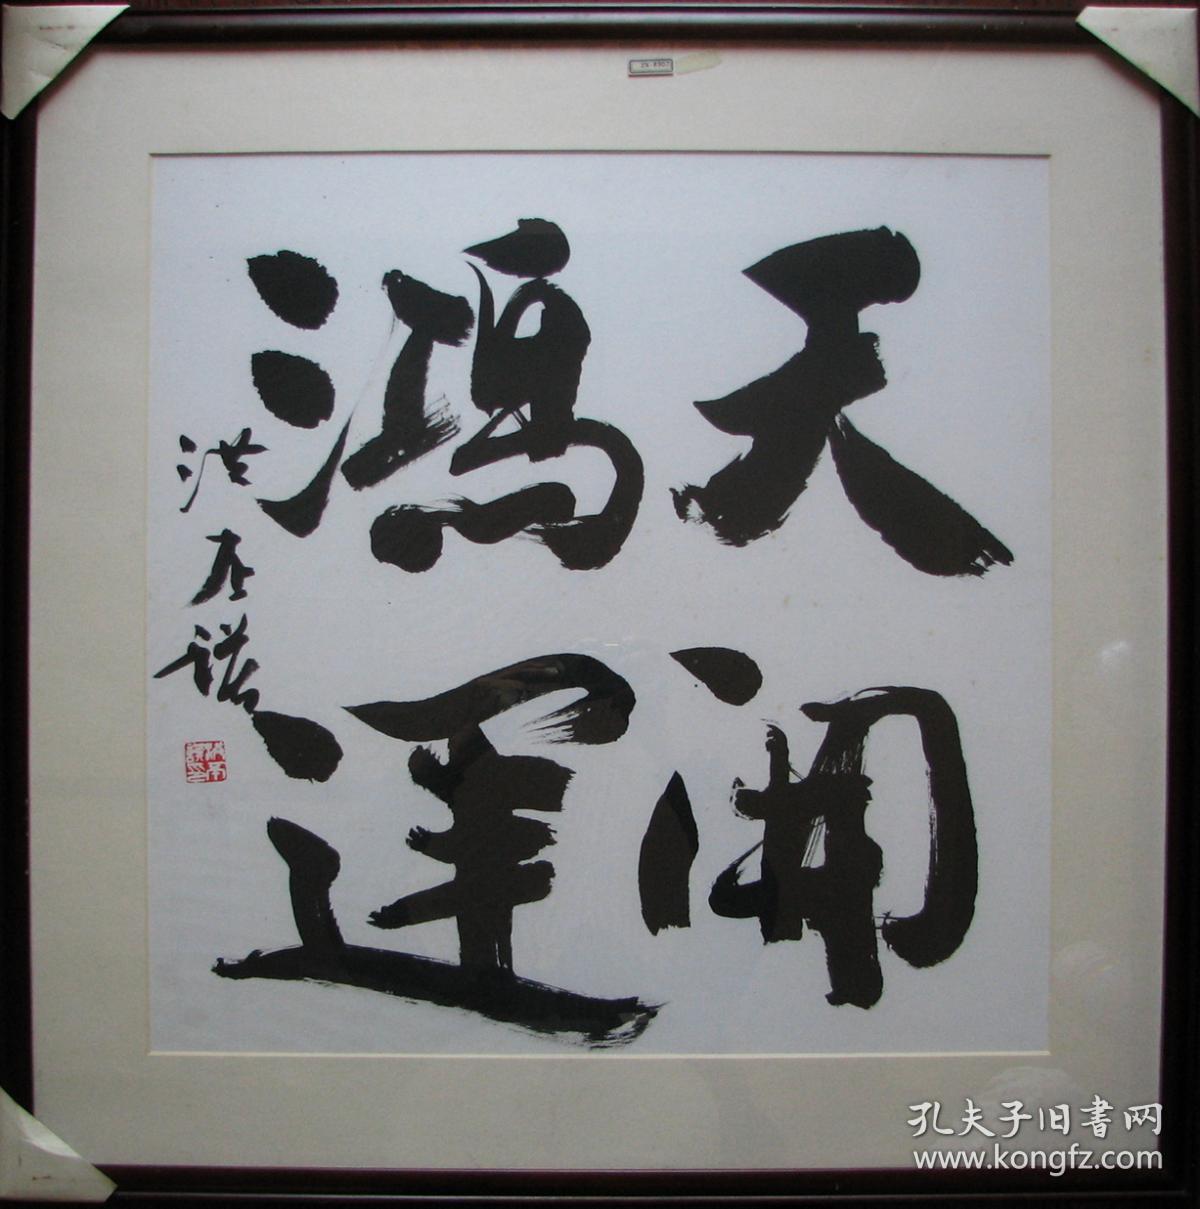 天开
鸿运
洪在诺
孔夫子旧书网
www.kongfz.com